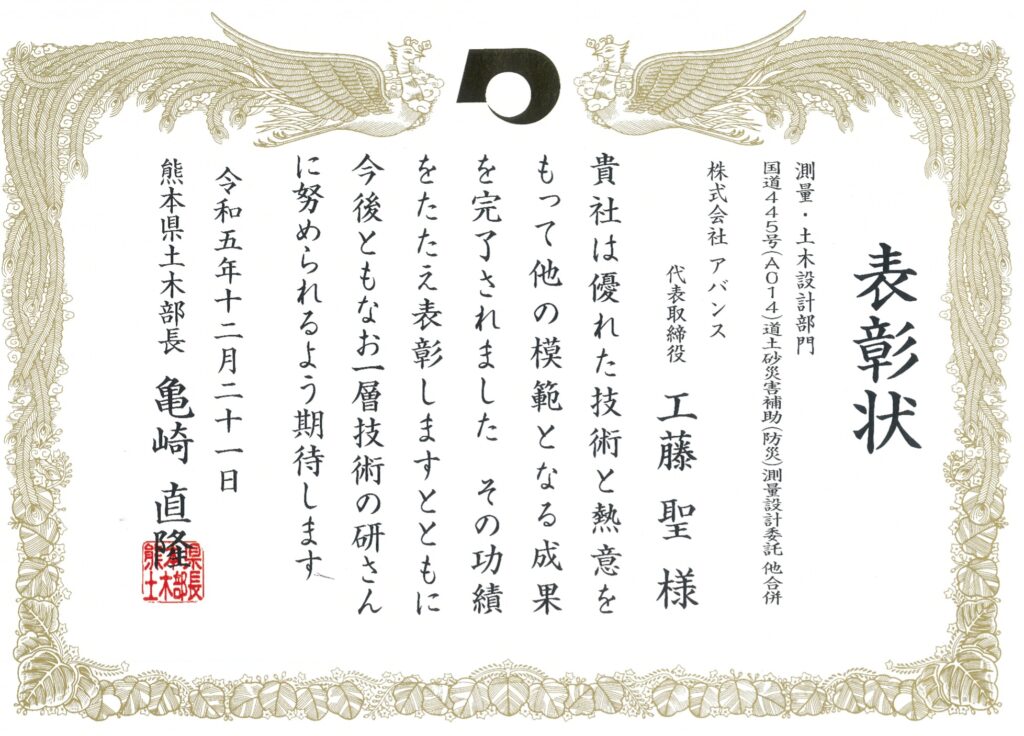 表彰状
測量・土木設計部門
国道445号(A014)道土砂災害補助(防災)測量設計委託 他合併
株式会社 アバンス
代表取締役 工藤 聖 様
貴社は優れた技術と熱意を
もって他の模範となる成果
を完了されました その功績
をたたえ表彰しますとともに
今後ともなお一層技術の研さん
に努められるよう期待します
令和五年十二月二十一日
熊本県土木部長 亀崎 直隆
熊本県
土木部長